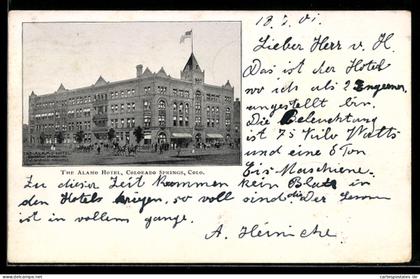 18.7.01.
Lieber Herr v. H.
Das ist der Hotel
wo ich als 2 Engeneer.
angestellt bin.
Die Beleuchtung
ist 75 Kilo Watts
und eine 5 Ton
Eis-Maschiene.
THE ALAMO HOTEL, COLORADO SPRINGS, COLO.
Zu dieser Zeit kammen kein Platz in
den Hotels kriegen, so voll sind die. Der
ist in vollem gange.
A. Heinicke